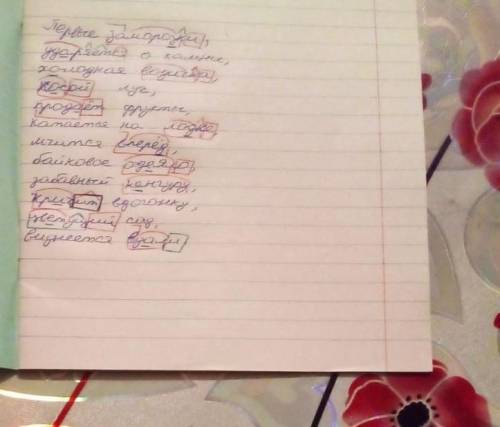 Первые заморозки,
ударяется о камни,
холодная водица,
косой луг,
продает фрукты,
катается на лодке
мчится вперёд,
байковое одеяло,
забавный кенгуру,
кричит вдогонку,
цветущий сад,
виднеется вдали